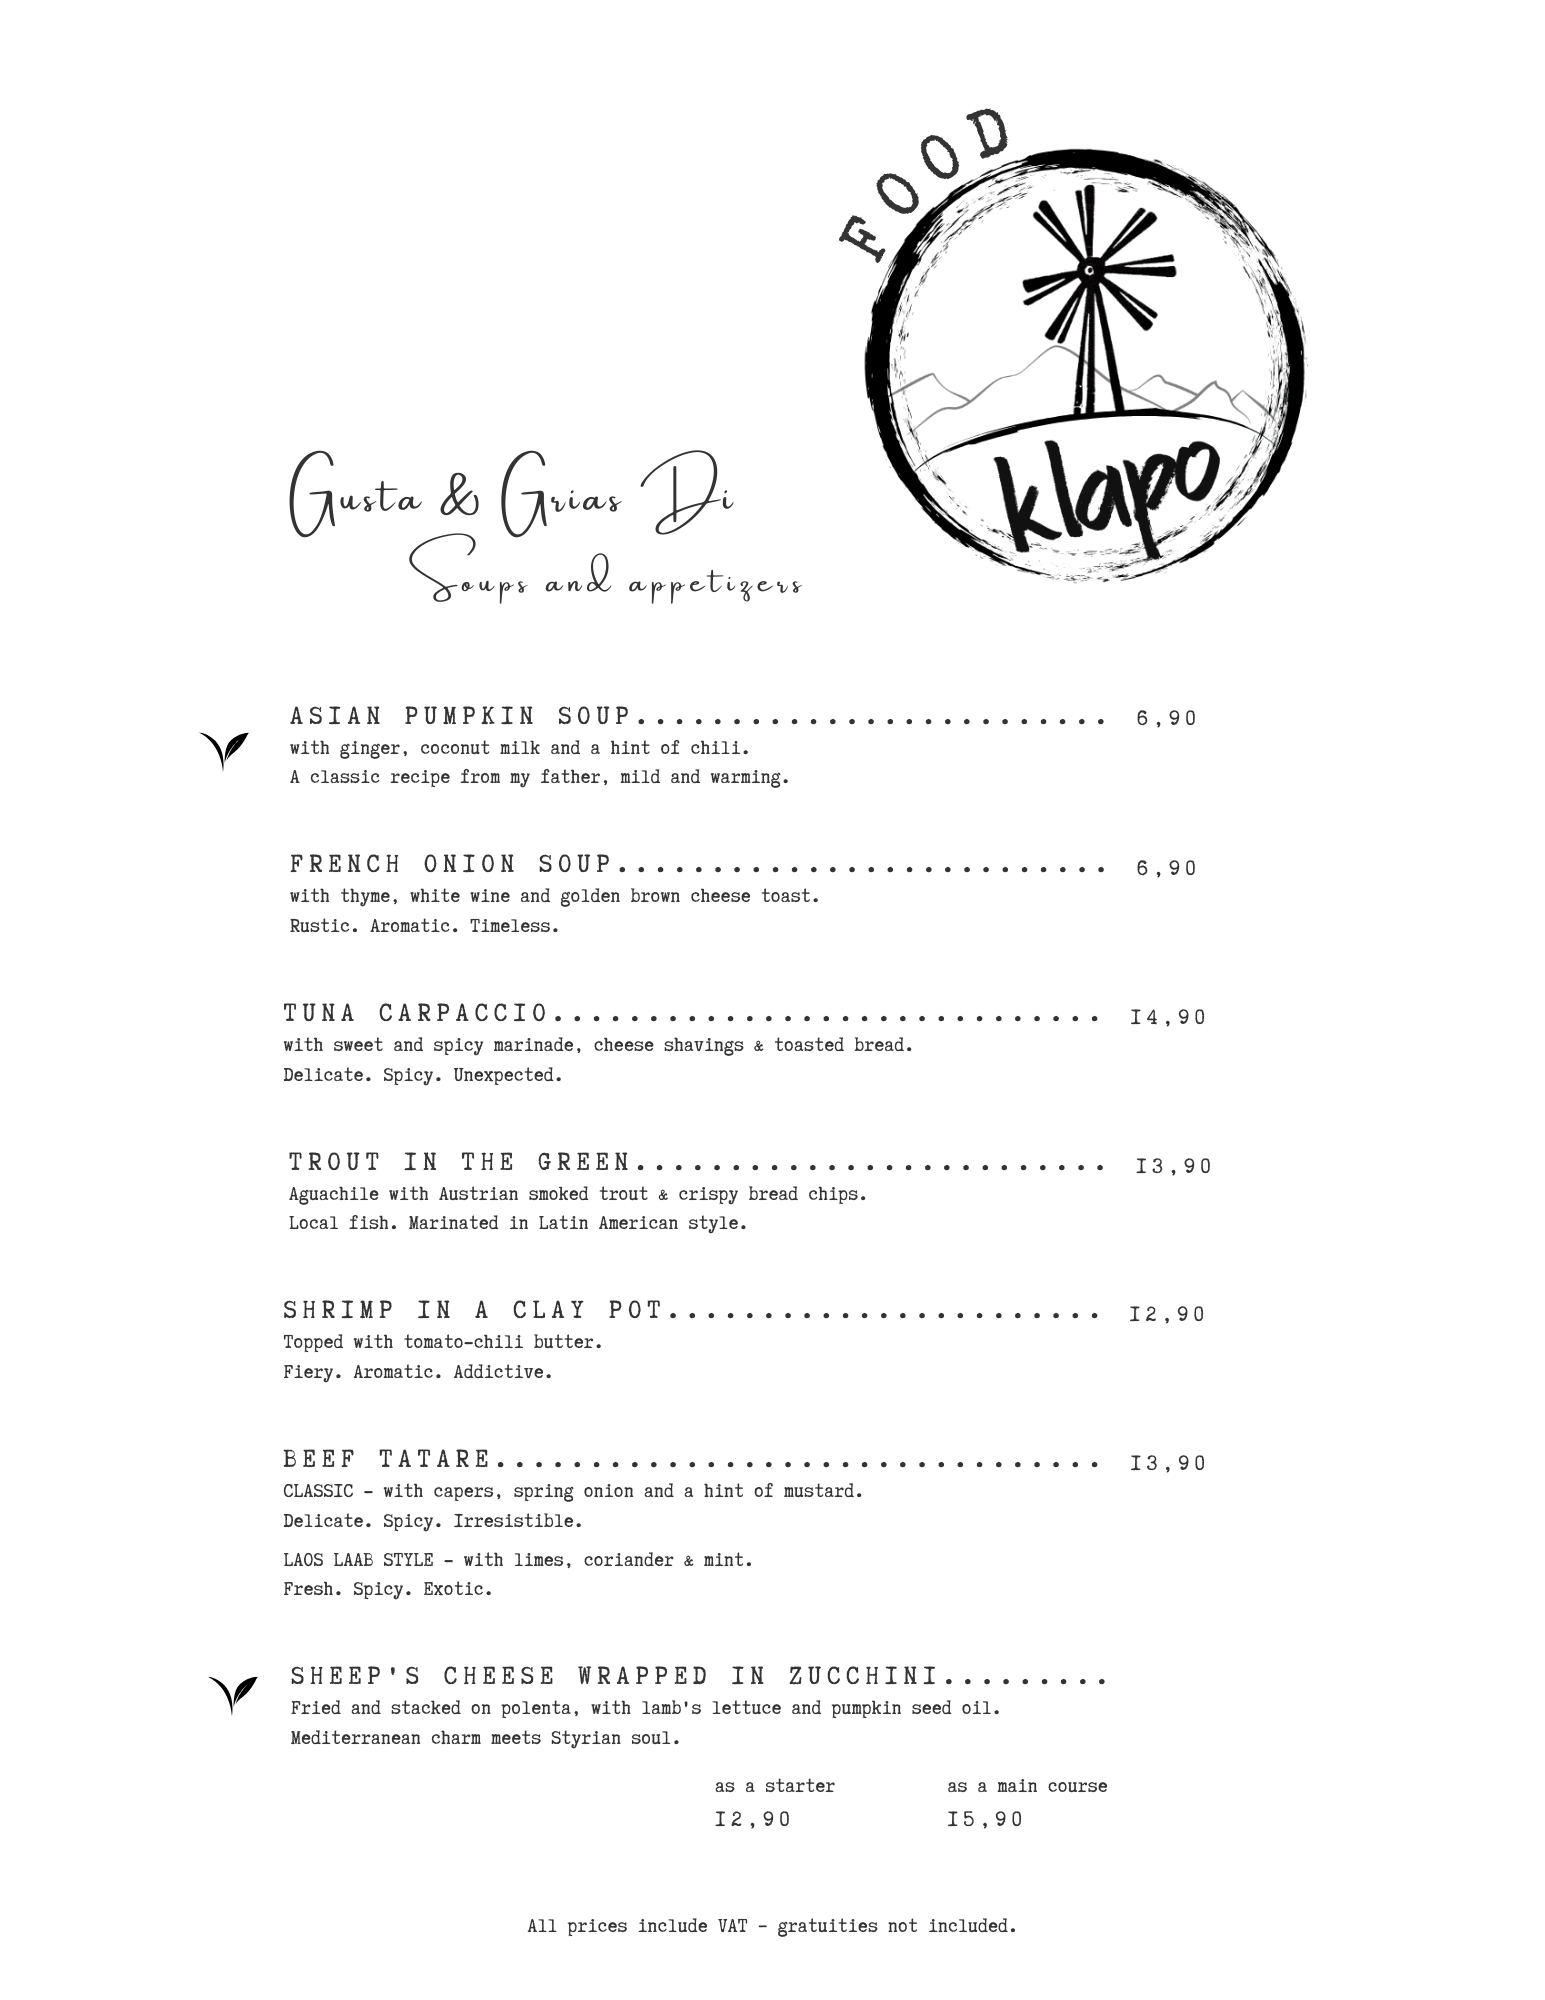 FOOD
klapo
Gusta & Grias Di
Soups and appetizers
ASIAN PUMPKIN SOUP......................... 6,90
with ginger, coconut milk and a hint of chili.
A classic recipe from my father, mild and warming.
FRENCH ONION SOUP.......................... 6,90
with thyme, white wine and golden brown cheese toast.
Rustic. Aromatic. Timeless.
TUNA CARPACCIO............................. 14,90
with sweet and spicy marinade, cheese shavings & toasted bread.
Delicate. Spicy. Unexpected.
TROUT IN THE GREEN......................... 13,90
Aguachile with Austrian smoked trout & crispy bread chips.
Local fish. Marinated in Latin American style.
SHRIMP IN A CLAY POT....................... 12,90
Topped with tomato-chili butter.
Fiery. Aromatic. Addictive.
BEEF TATARE................................ 13,90
CLASSIC - with capers, spring onion and a hint of mustard.
Delicate. Spicy. Irresistible.
LAOS LAAB STYLE - with limes, coriander & mint.
Fresh. Spicy. Exotic.
SHEEP'S CHEESE WRAPPED IN ZUCCHINI.........
Fried and stacked on polenta, with lamb's lettuce and pumpkin seed oil.
Mediterranean charm meets Styrian soul.
as a starter as a main course
12,90 15,90
All prices include VAT - gratuities not included.